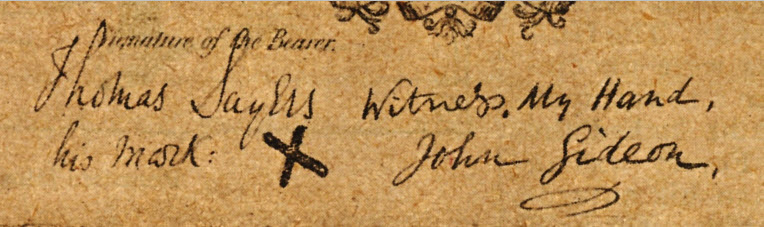 Signature of the Bearer.
Thomas Sayers Witness, My Hand,
his mark: X John Gideon,